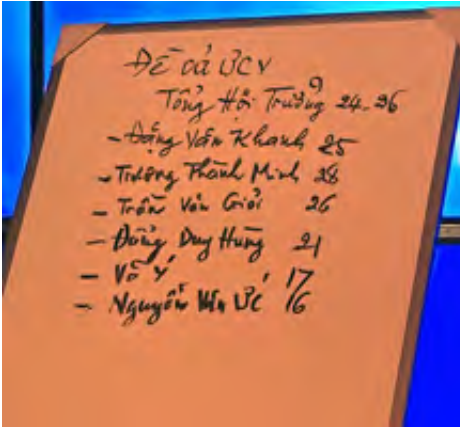 Đề cử ƯCV
Tổng Hội Trưởng 24-26
- Đặng Văn Khanh 25
- Trương Thành Minh 28
- Trần Văn Giỏi 26
- Đặng Duy Hưng 21
- Võ Ý 17
- Nguyễn Văn Ức 16